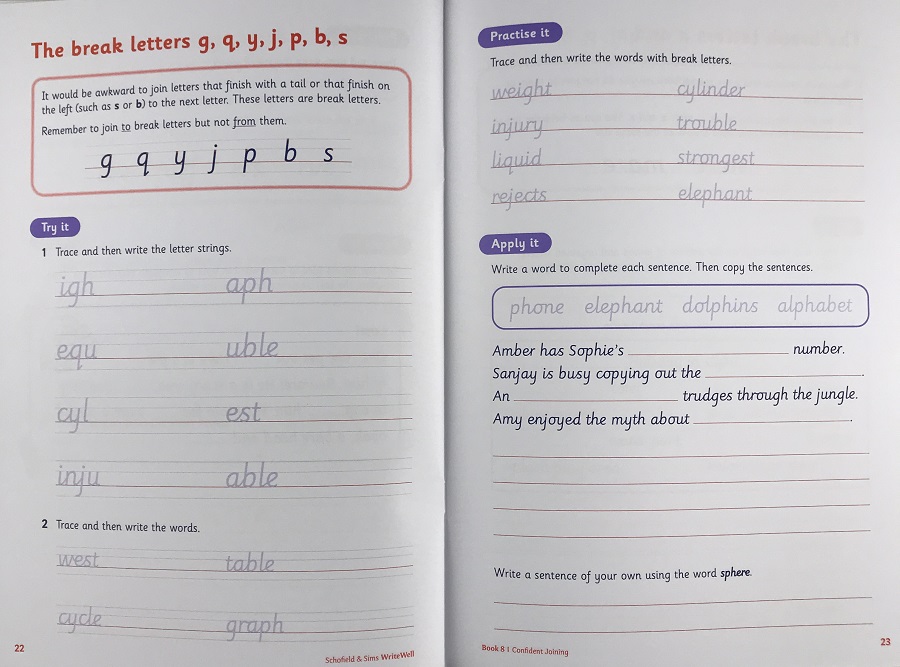 The break letters g, q, y, j, p, b, s
It would be awkward to join letters that finish with a tail or that finish on
the left (such as s or b) to the next letter. These letters are break letters.
Remember to join to break letters but not from them.
g q y j p b s
Try it
1 Trace and then write the letter strings.
igh aph
equ uble
cyl est
inju able
2 Trace and then write the words.
west table
cycle graph
22
Schofield & Sims WriteWell
Practise it
Trace and then write the words with break letters.
weight cylinder
injury trouble
liquid strongest
rejects elephant
Apply it
Write a word to complete each sentence. Then copy the sentences.
phone elephant dolphins alphabet
Amber has Sophie's number.
Sanjay is busy copying out the .
An trudges through the jungle.
Amy enjoyed the myth about .
Write a sentence of your own using the word sphere.
Book 8 | Confident Joining
23